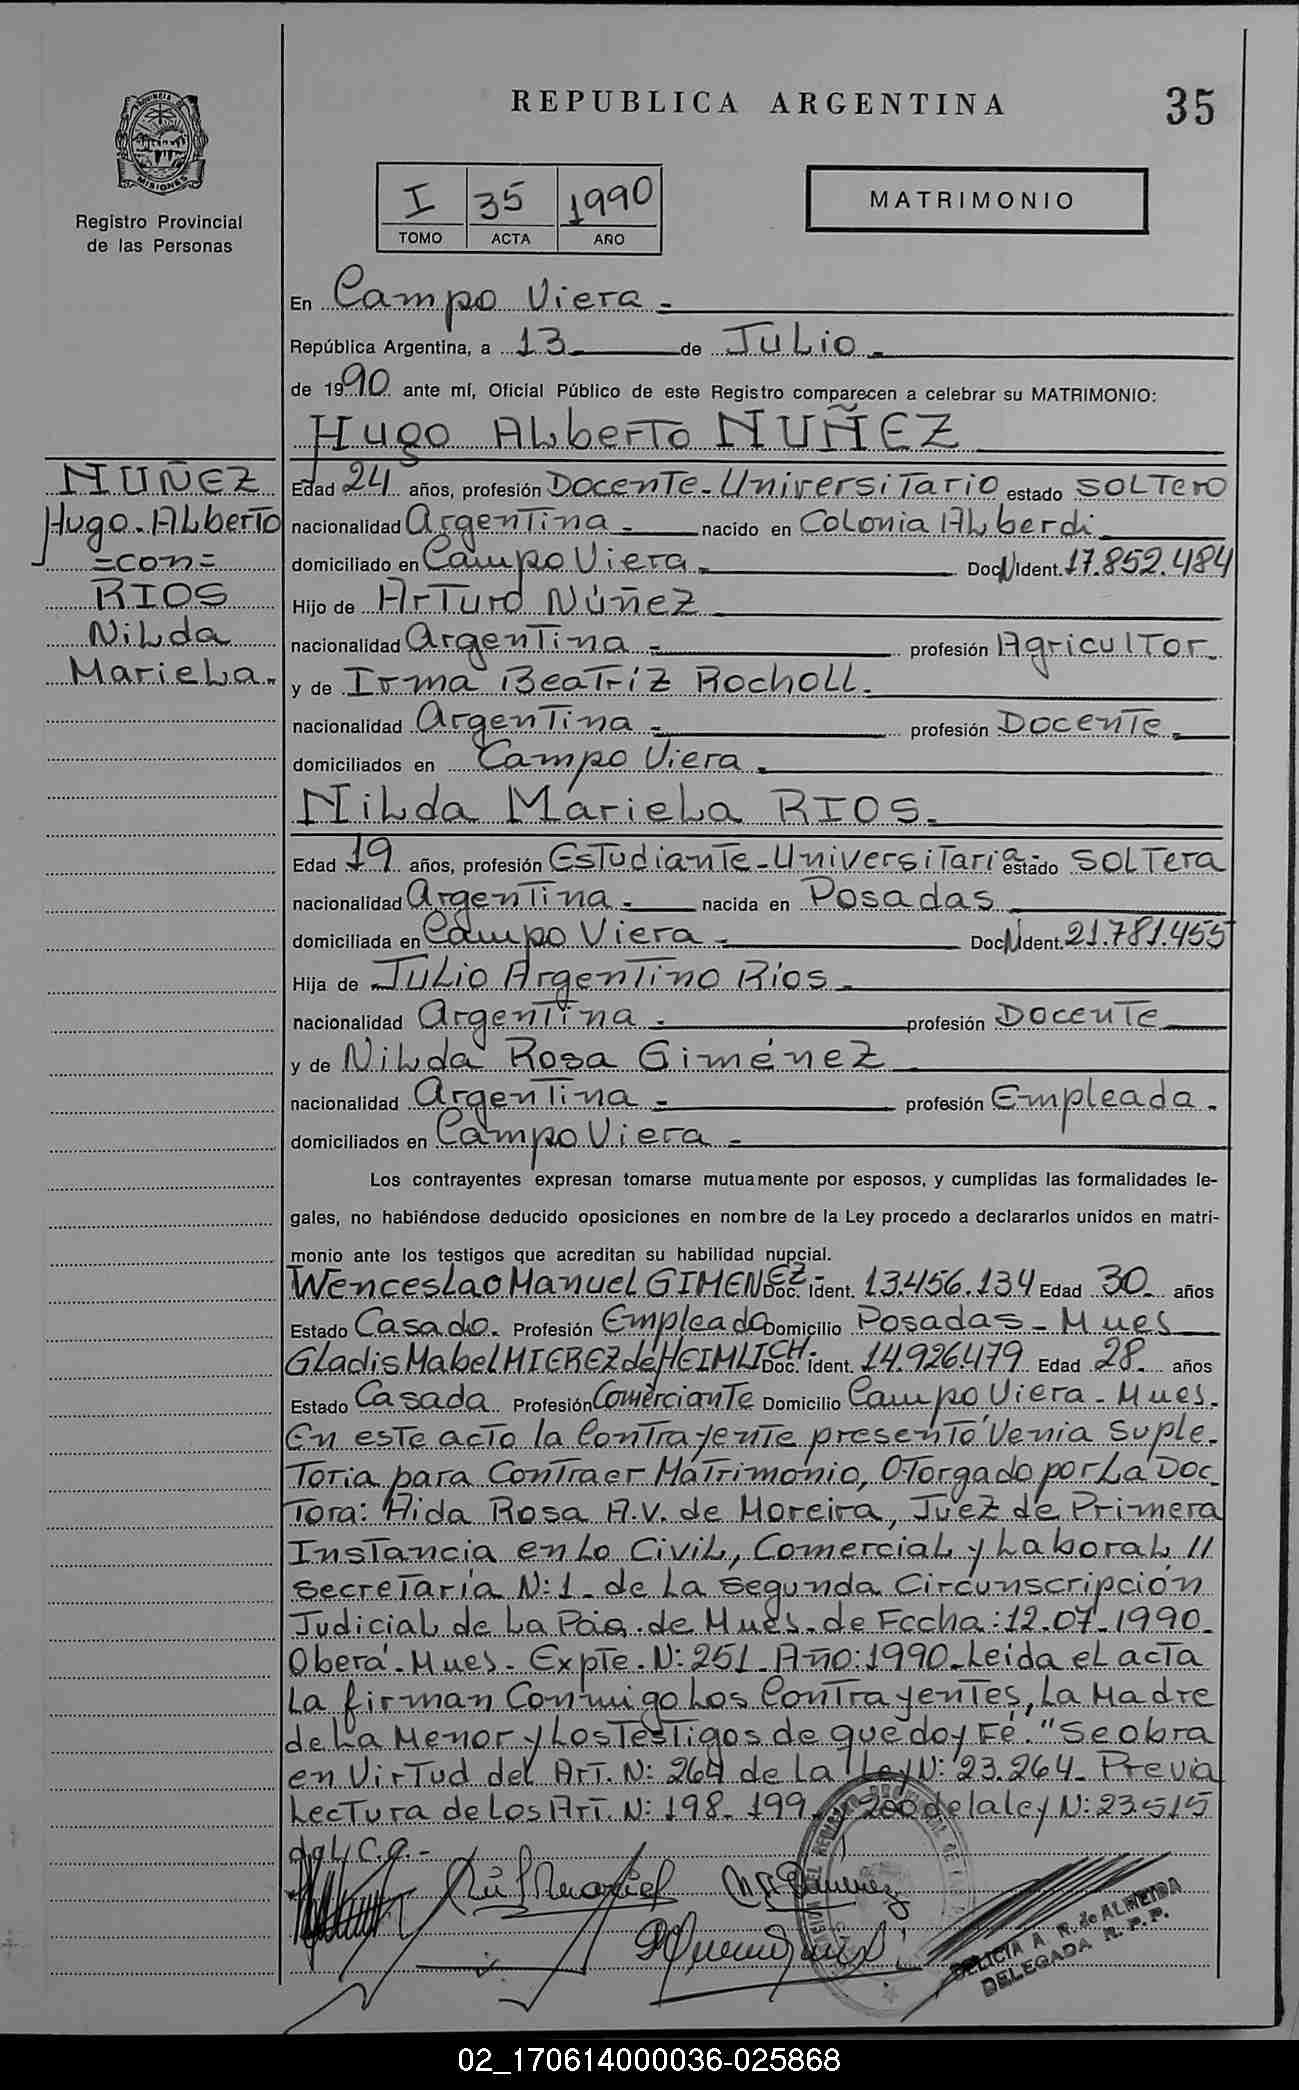 REPUBLICA ARGENTINA
35
PROVINCIA DE
MISIONES
Registro Provincial
de las Personas
I 35 1990
TOMO ACTA AÑO
MATRIMONIO
En Campo Viera.-
República Argentina, a 13 de Julio.-
de 1990 ante mí, Oficial Público de este Registro comparecen a celebrar su MATRIMONIO:
Hugo Alberto NUÑEZ
NUÑEZ
Hugo-Alberto
=con=
RIOS
Nilda
Mariela.-
Edad 24 años, profesión Docente-Universitario estado soltero
nacionalidad Argentina.- nacido en Colonia Alberdi
domiciliado en Campo Viera.- Doc.N.Ident. 17.852.484
Hijo de Arturo Núñez
nacionalidad Argentina.- profesión Agricultor.
y de Irma Beatriz Rocholl.
nacionalidad Argentina.- profesión Docente.
domiciliados en Campo Viera.
Nilda Mariela RIOS.
Edad 19 años, profesión Estudiante-Universitaria.- estado soltera
nacionalidad Argentina.- nacida en Posadas
domiciliada en Campo Viera.- Doc.N.Ident. 21.781.455
Hija de Julio Argentino Ríos.
nacionalidad Argentina.- profesión Docente
y de Nilda Rosa Giménez
nacionalidad Argentina.- profesión Empleada.
domiciliados en Campo Viera.-
Los contrayentes expresan tomarse mutuamente por esposos, y cumplidas las formalidades le-
gales, no habiéndose deducido oposiciones en nombre de la Ley procedo a declararlos unidos en matri-
monio ante los testigos que acreditan su habilidad nupcial.
Wenceslao Manuel GIMENEZ.- Doc. Ident. 13.456.134 Edad 30 años
Estado Casado. Profesión Empleado Domicilio Posadas-Mnes
Gladis Mabel MIEREZ de HEIMLICH.- Doc. Ident. 14.926.479 Edad 28 años
Estado Casada Profesión Comerciante Domicilio Campo Viera-Mnes.
En este acto la Contrayente presentó Venia Suple-
toria para Contraer Matrimonio, Otorgado por La Doc-
tora: Aida Rosa A.V. de Moreira, Juez de Primera
Instancia en Lo Civil, Comercial y Laboral //
secretaría N:1- de La segunda Circunscripción
Judicial de La Pcia. de Mnes. de Fecha: 12-07-1990-
Oberá-Mnes- Expte. N: 251- Año: 1990- Leida el acta
la firman Conmigo Los Contrayentes, la Madre
de La Menor y Los Testigos de que doy Fé. "Se obra
en Virtud del Art. N: 264 de la Ley N: 23.264- Previa
lectura de Los Art. N: 198- 199- y 200 de la ley N: 23.515
del C.C.-
DELICIA A. R. de ALMEIDA
DELEGADA R. P. P.
02_170614000036-025868